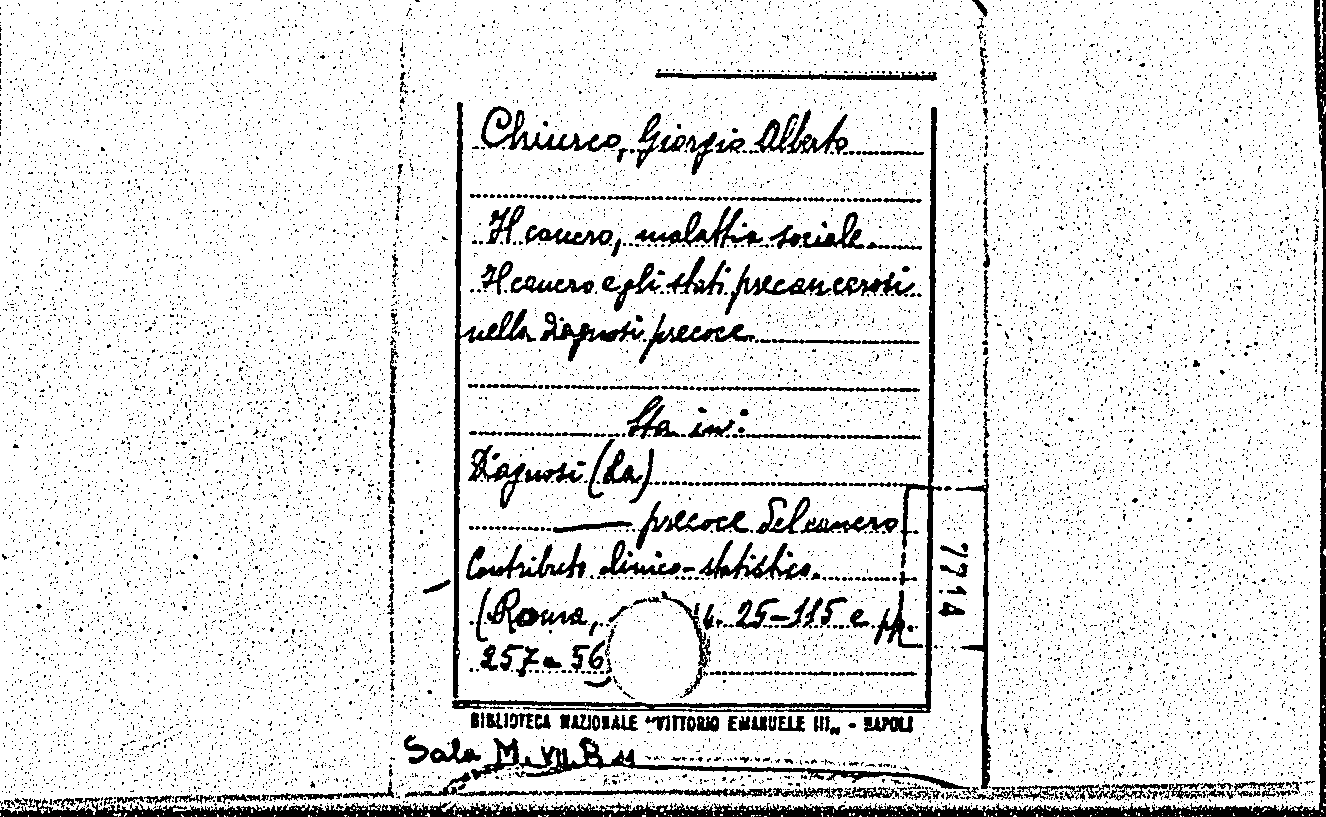 Chiurco, Giorgio Alberto
Il cancro, malattia sociale.
Il cancro e gli stati precancerosi
nella diagnosi precoce.
Sta in:
Diagnosi (La)
—— precoce del cancro
Contributo clinico-statistico.
(Roma, 25-115 e pp.
257 a 56
7714
BIBLIOTECA NAZIONALE "VITTORIO EMANUELE III„ - NAPOLI
Sala M. VII. B